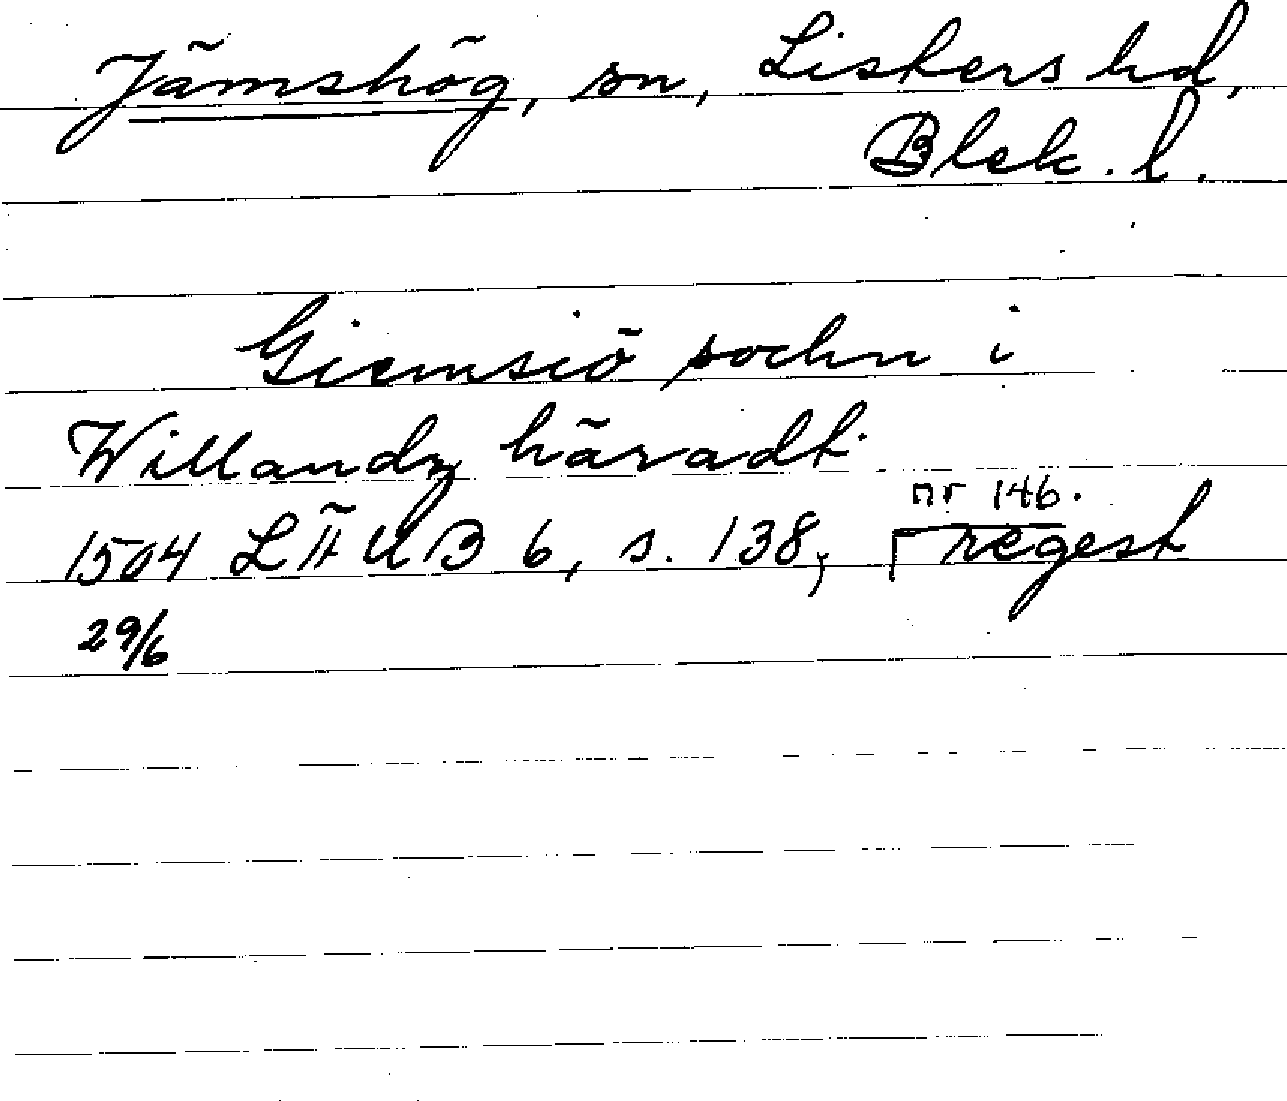 Jämshög, sn, Listers hd,
Blek. l.
Giemsiö sochn i
Willandz häradt
nr 146.
1504 LÄUB 6, s. 138, regest
29/6